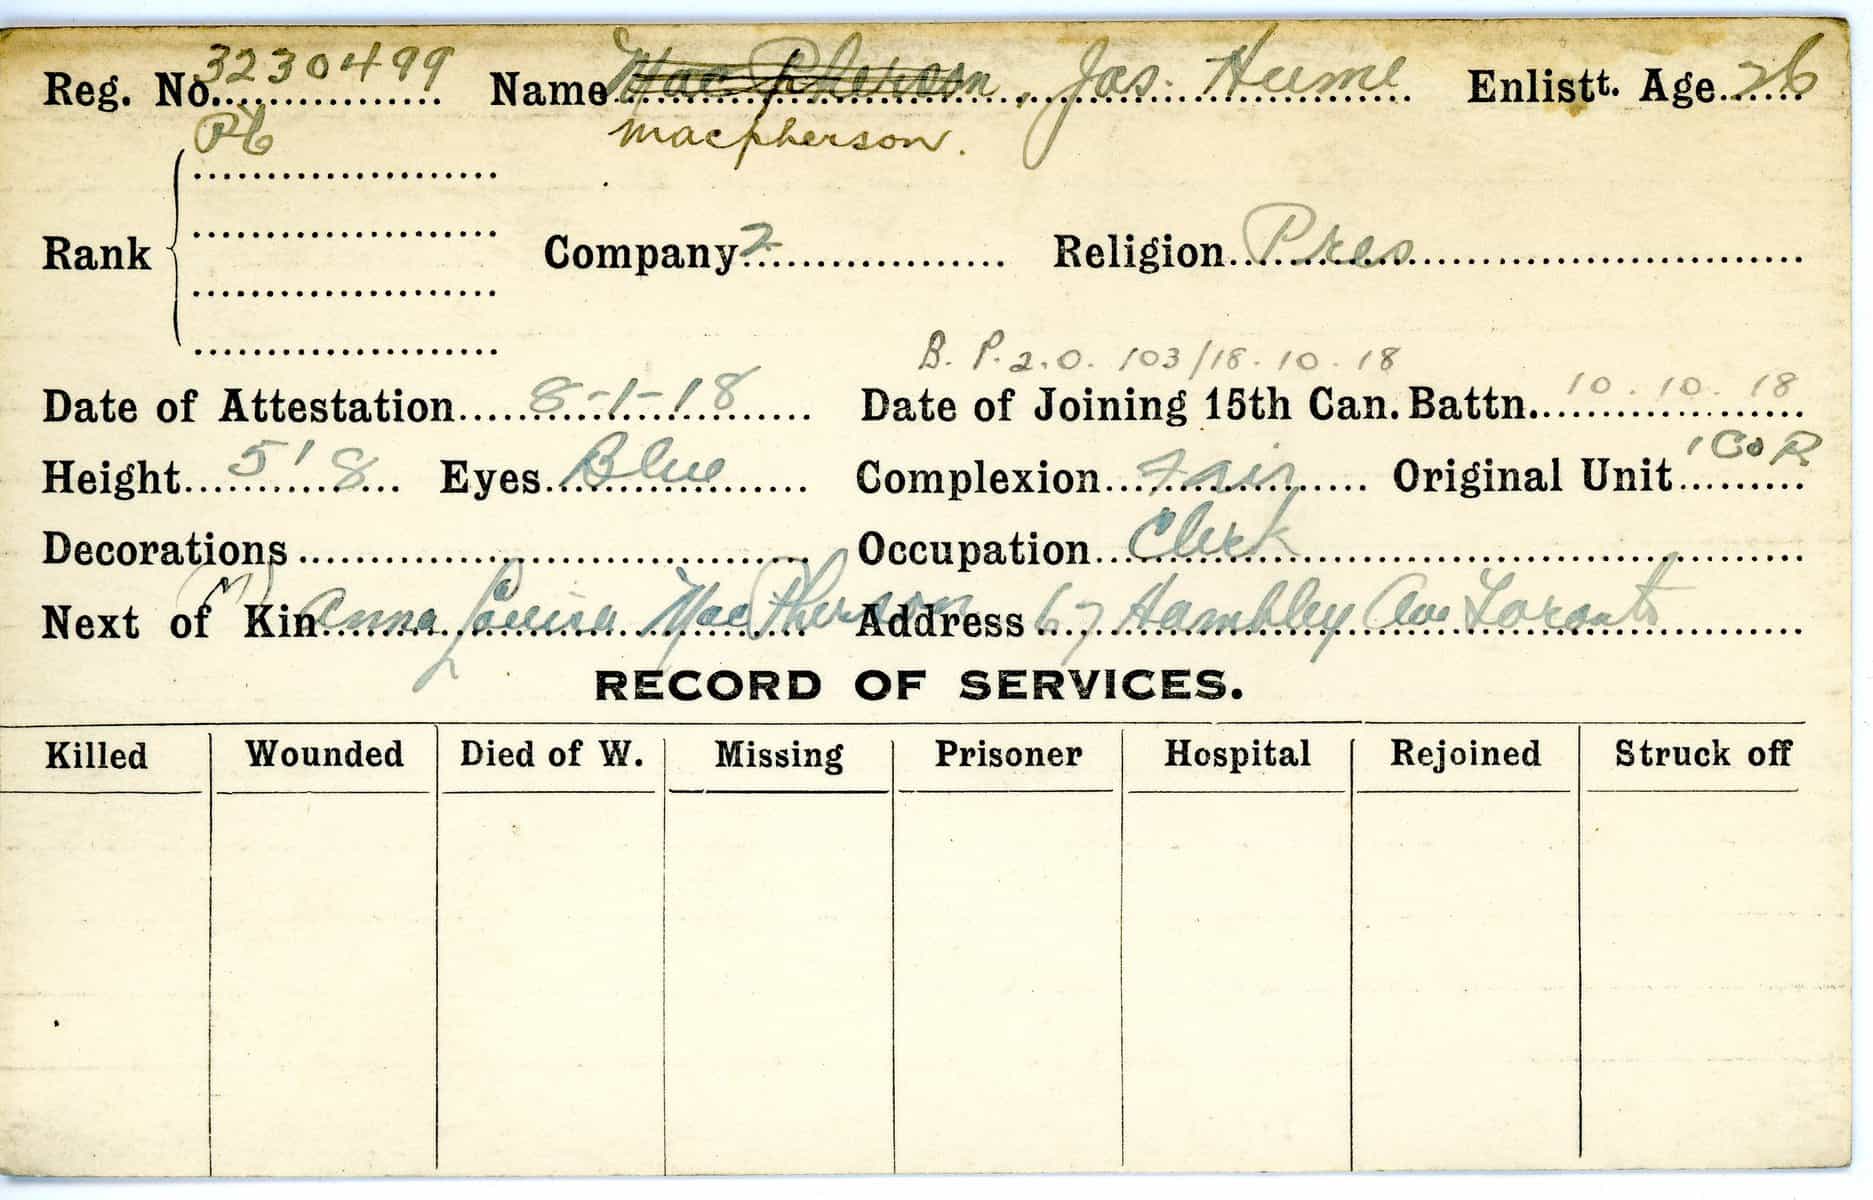 Reg. No. 3230499 Name MacPherson, Jas. Hume Enlistt. Age 26
Pte Macpherson.
Rank Company 2 Religion Pres
B. P.2.O. 103/18.10.18
Date of Attestation 8-1-18 Date of Joining 15th Can. Battn. 10.10.18
Height 5'8 Eyes Blue Complexion Fair Original Unit 1 C o R
Decorations Occupation Clerk
(M)
Next of Kin Anna Louisa MacPherson Address 67 Hambley Ave Toronto
RECORD OF SERVICES.
Killed Wounded Died of W. Missing Prisoner Hospital Rejoined Struck off